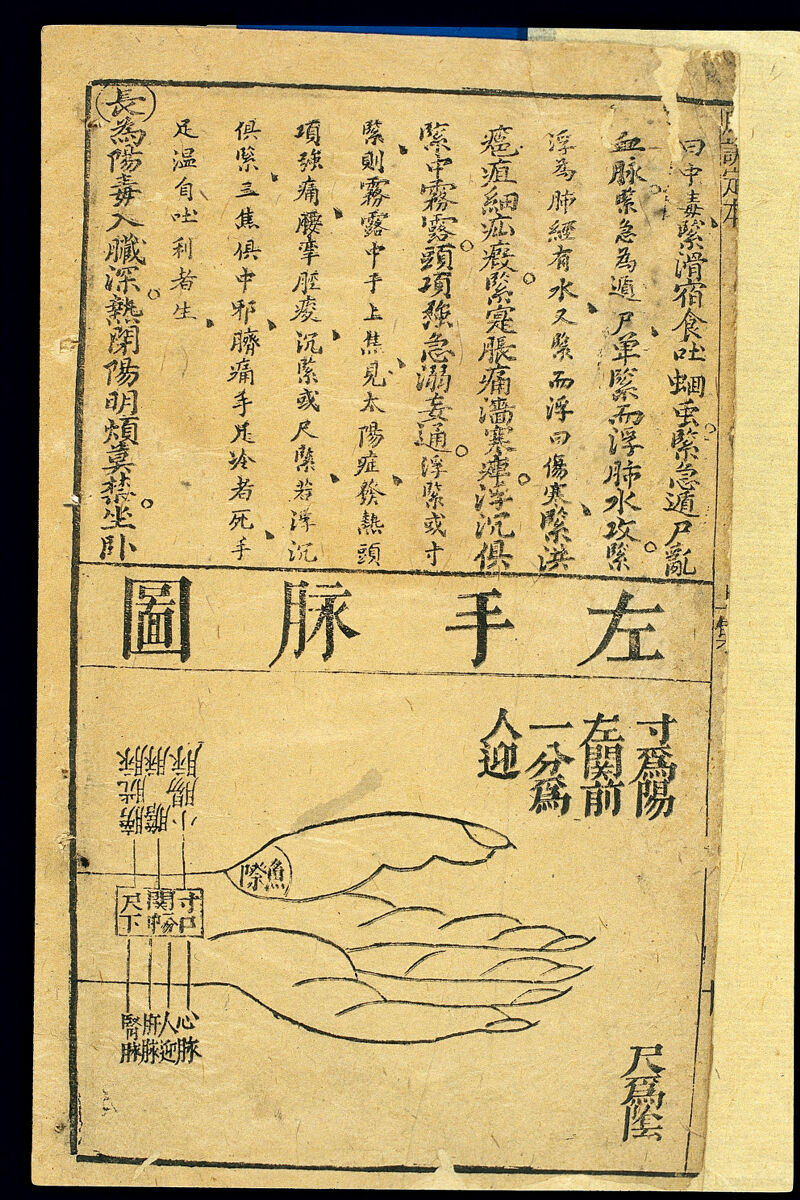 曰中毒緊滑宿食吐蛔蟲緊急遁尸亂
血脉緊急為遁尸單緊而浮肺水攻緊
浮為肺經有水又緊而浮曰傷寒緊洪
疽細疝瘕緊寔脹痛濇寒痺浮沉俱
緊中霧露頭項強急溺妄通浮緊或寸
緊則霧露中于上焦見太陽症發熱頭
項強痛腰攣脛痠沉緊或尺緊若浮沉
俱緊三焦俱中邪臍痛手足冷者死手
足溫自吐利者生
長為陽毒入臟深熱閉陽明煩莫禁坐卧
左手脉圖
寸爲陽
左關前
一分爲
人迎
尺爲陰
魚際
小腸脉
膽脉
膀胱脉
寸口
關中
一分
尺下
心脉
人迎
肝脉
腎脉